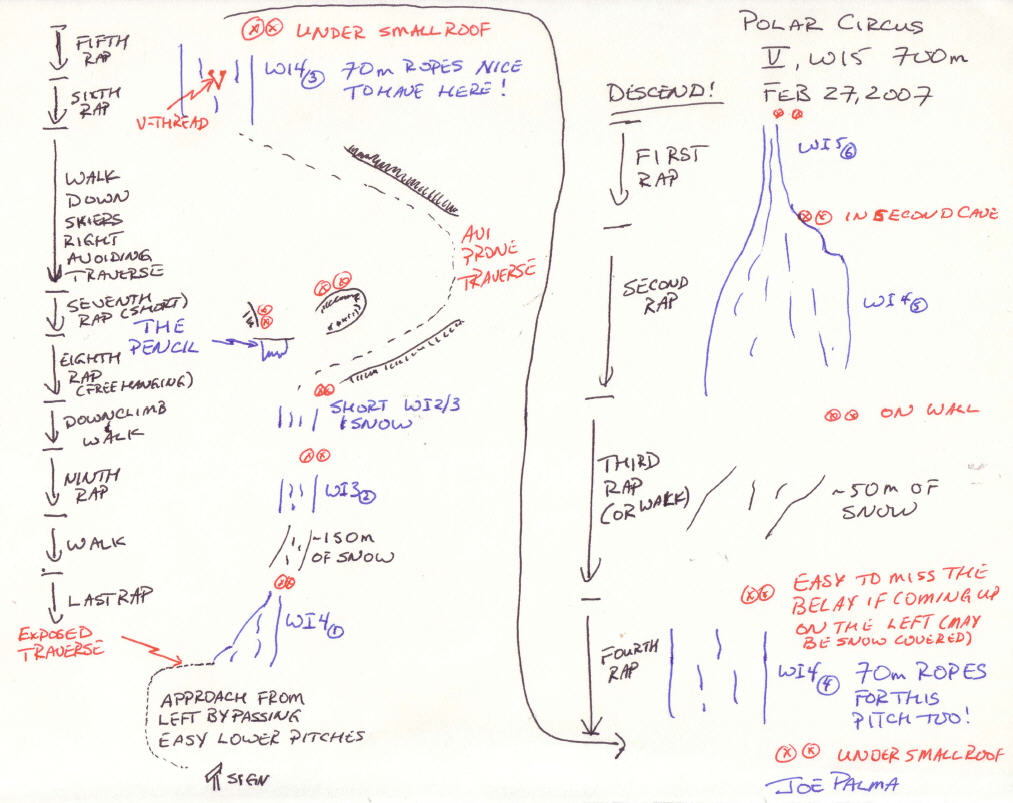 POLAR CIRCUS
V, WI5 700m
FEB 27, 2007
DESCEND!
FIRST
RAP
WI5 6
IN SECOND CAVE
SECOND
RAP
WI4 5
ON WALL
THIRD
RAP
(OR WALK)
~50m OF
SNOW
EASY TO MISS THE
BELAY IF COMING UP
ON THE LEFT (MAY
BE SNOW COVERED)
FOURTH
RAP
WI4 4
70m ROPES
FOR THIS
PITCH TOO!
UNDER SMALL ROOF
JOE PALMA
FIFTH
RAP
UNDER SMALL ROOF
SIXTH
RAP
WI4 3
70m ROPES NICE
TO HAVE HERE!
V-THREAD
WALK
DOWN
SKIERS
RIGHT
AVOIDING
TRAVERSE
AVI
PRONE
TRAVERSE
SEVENTH
RAP (SHORT)
THE
PENCIL
EIGHTH
RAP
(FREE HANGING)
SHORT WI2/3
& SNOW
DOWNCLIMB
& WALK
NINTH
RAP
WI3 2
WALK
~150m
OF SNOW
LAST RAP
WI4 1
EXPOSED
TRAVERSE
APPROACH FROM
LEFT BYPASSING
EASY LOWER PITCHES
SIGN